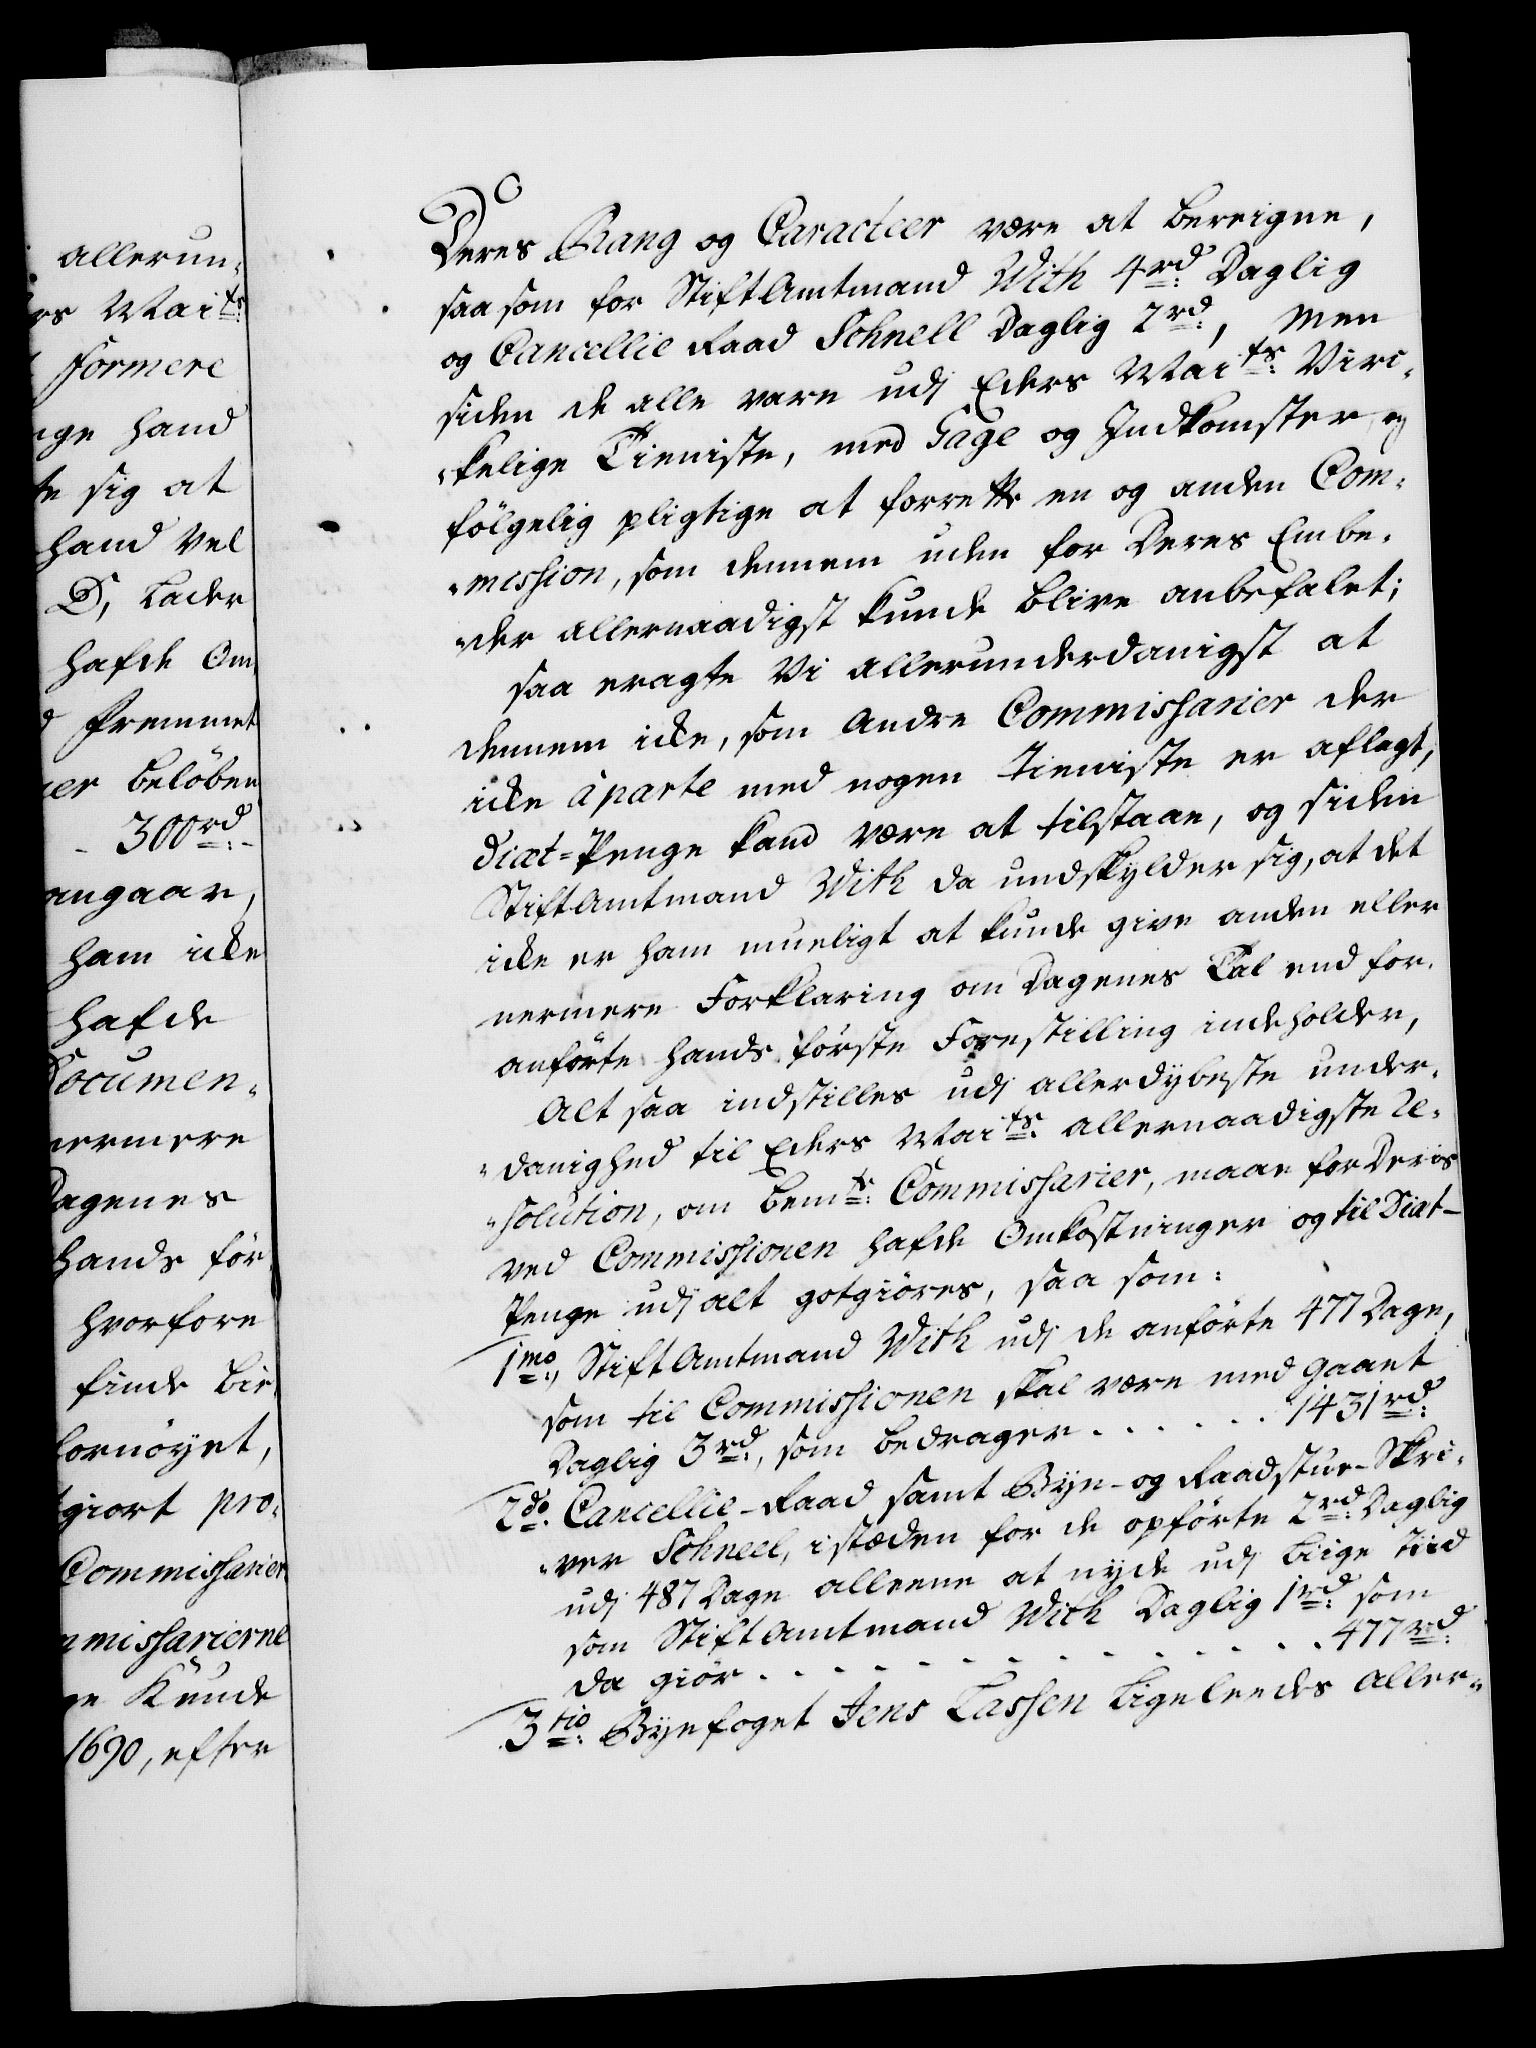 allerun-
rs Maits:
formere
nge hand
te sig at
hand vel
D, Lader
hafde Om
fremmet
er beløben
- 300rd:-
angaar,
ham icke
hafde
Documen-
nermere
Dagenes
hands før
hvorfore
finde bil
fornøyet,
tgiort pro-
Commissarier
mmissarierne
ge Kunde
1690, efter
Deres Rang og Caracteer være at bereigne,
saa som for StiftAmtmand With 4rd: Daglig
og Cancellie Raad Schnell Daglig 2rd:, Men
siden de alle vare udj Eders Maits: Virc-
-kelige Tieniste, med Gage og Indkomster, og
følgelig pligtige at forrette en og anden Com-
-mission, som dennem uden for Deres Embe-
-der allernaadigst kunde blive anbefalet;
saa eragte Vi allerunderdanigst at
dennem icke, som Andre Commissarier der
icke à parte med nogen Tieniste er aflagt,
Diæt-Penge kand være at tilstaae, og siden
StiftAmtmand With da undskylder sig, at det
icke er ham mueligt at kunde give anden eller
nermere Forklaring om Dagenes Tal end for-
anførte hands første Forestilling indeholder,
Alt saa indstilles udj allerdybeste under-
-danighed til Eders Maits: allernaadigste Re-
-solution, om bemte: Commissarier, maae for Deris
ved Commissionen hafde Omkostninger og til Diæt-
Penge udj alt gotgiøres, saa som:
1mo:, StiftAmtmand With udj de anførte 477 Dage,
som til Commissionen skal være med Gaaet
Daglig 3rd:, som bedrager . . . . . . 1431rd:
2do: Cancellie-Raad samt Bye- og Raadstue-Skri-
-ver Schnell, i stæden for de opførte 2rd: Daglig
udj 487 Dage alleene at nyde udj Liige Tiid
som StiftAmtmand With Daglig 1rd: som
da giør . . . . . . . . . . . . . . 477rd:
3tio: Byefoget Jens Lassen Ligeleedes Aller-